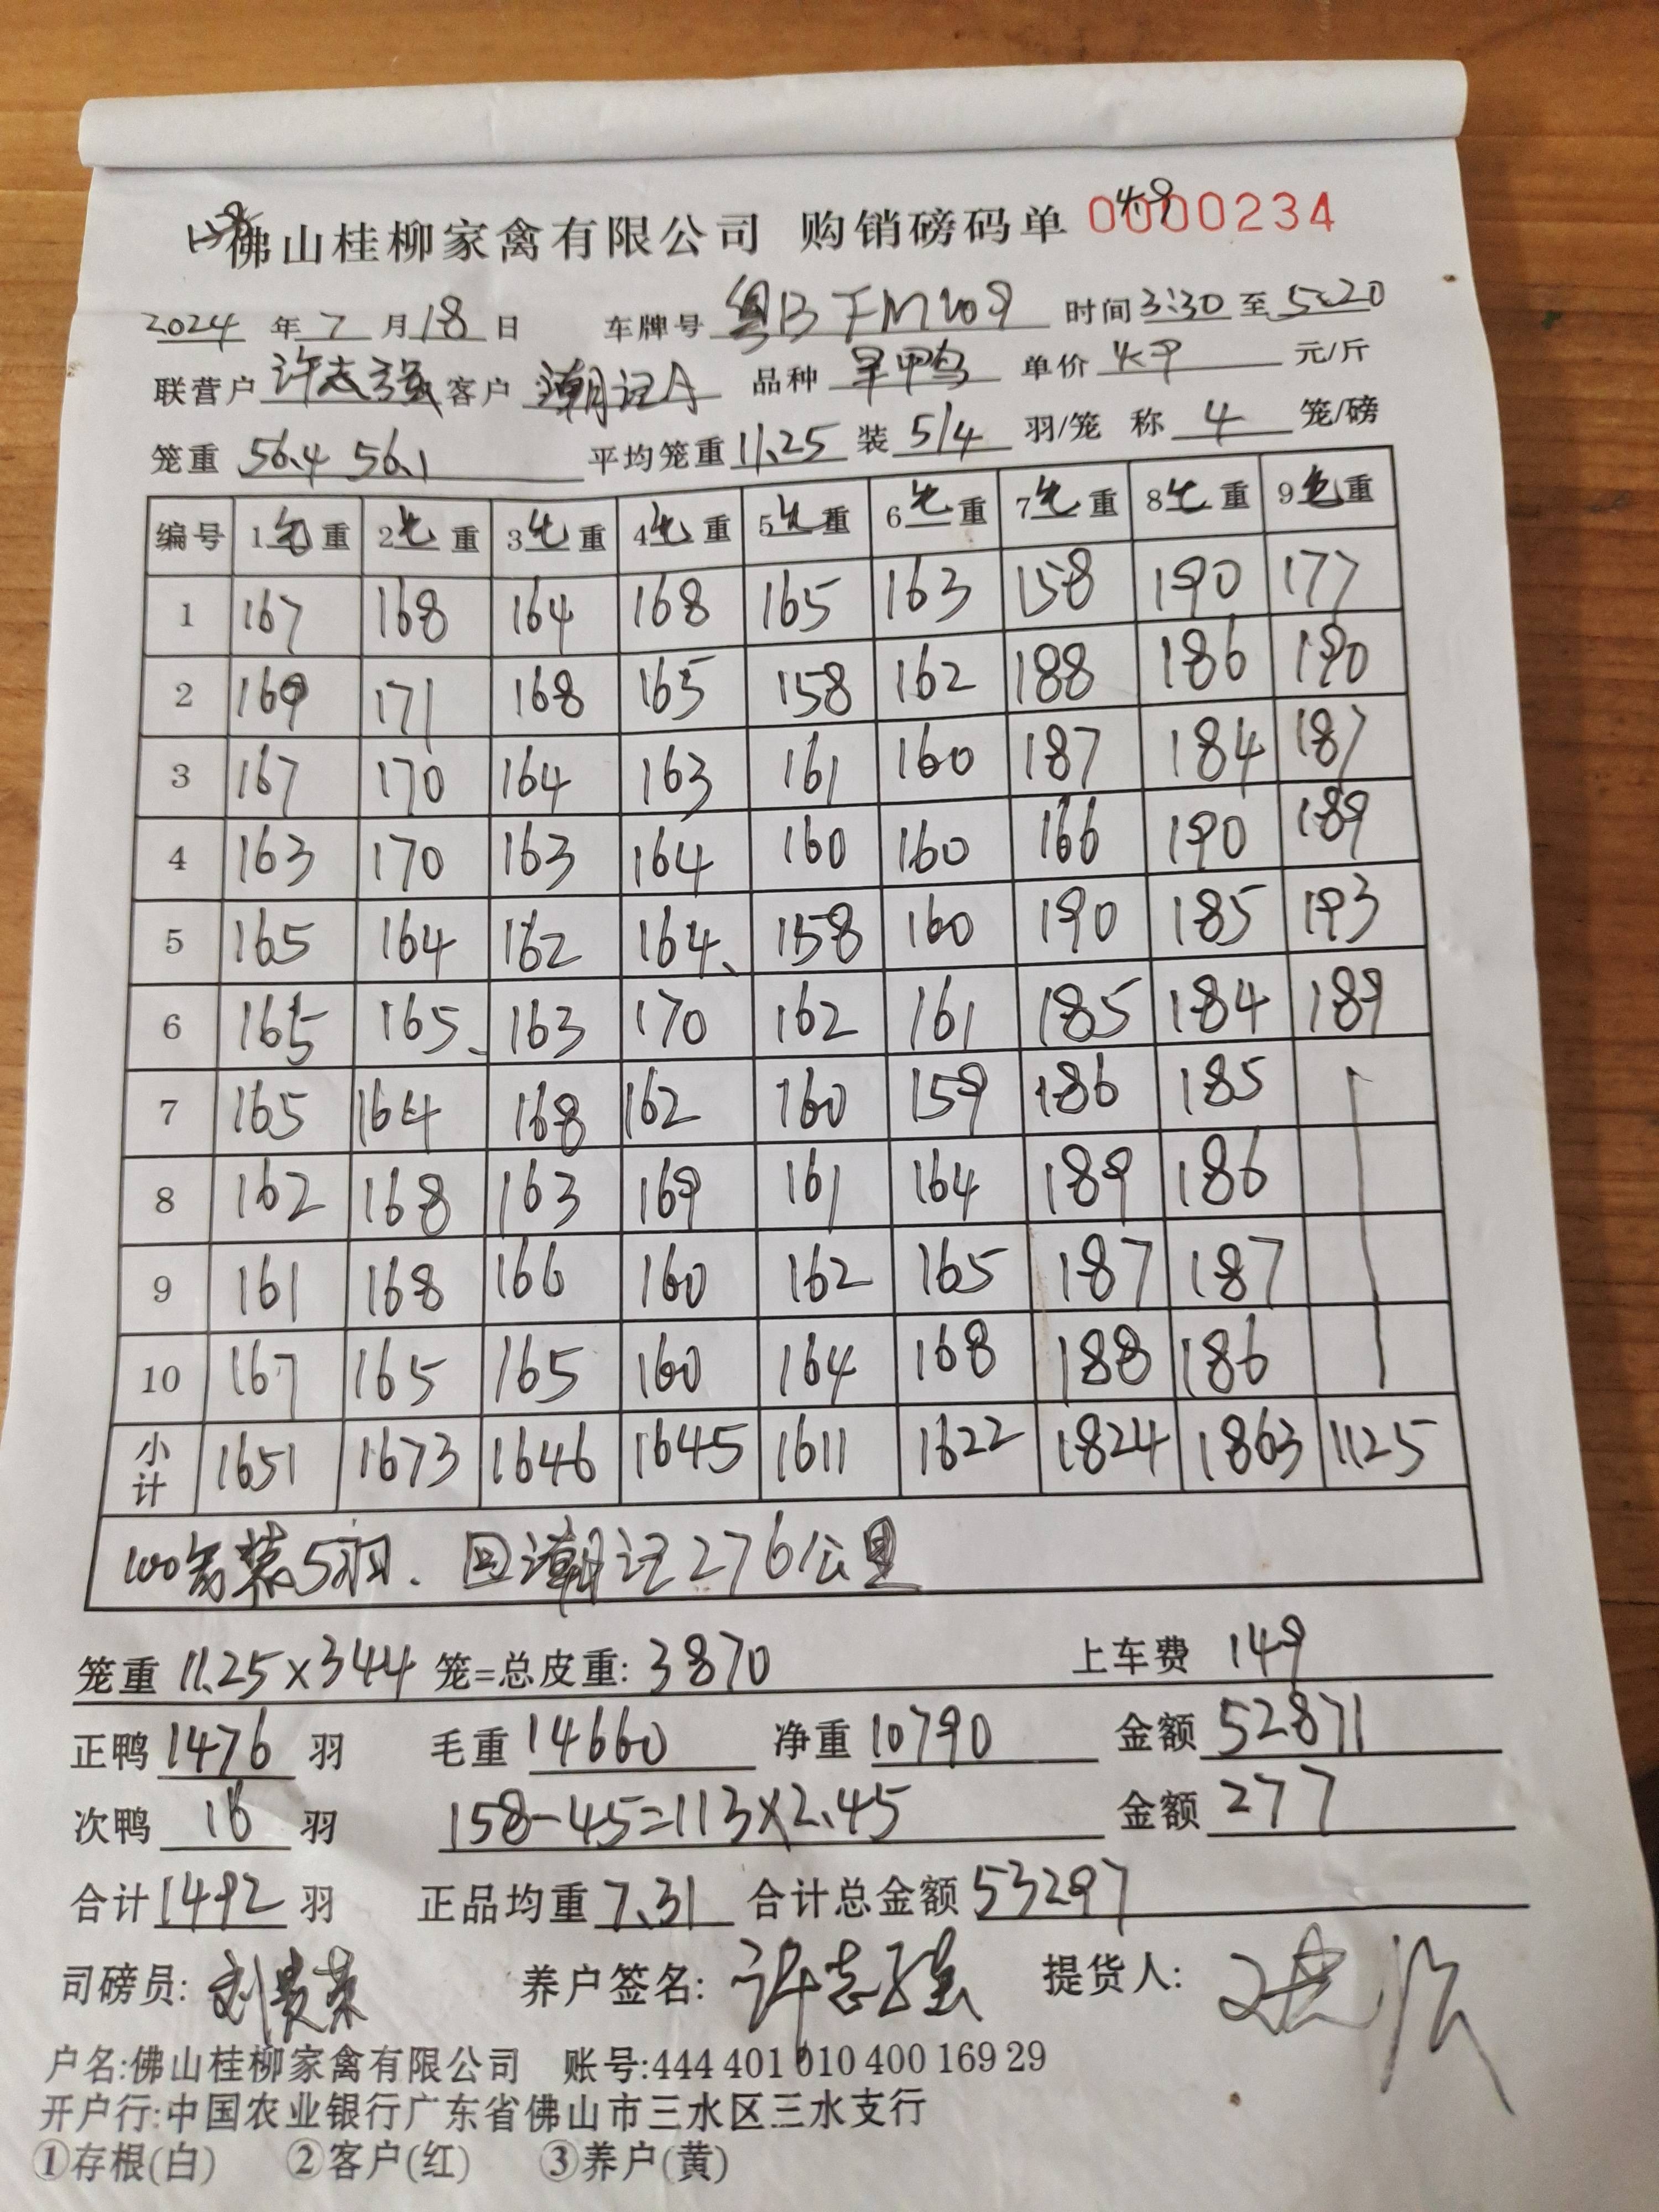 佛山桂柳家禽有限公司 购销磅码单 0000234
4.9
2024 年 7 月 18 日 车牌号 粤B FM209 时间 3:30 至 5:20
联营户 许志强 客户 潮记A 品种 旱鸭 单价 4.9 元/斤
笼重 56.4 56.1 平均笼重 11.25 装 5/4 羽/笼 称 4 笼/磅
编号 1毛重 2毛重 3毛重 4毛重 5毛重 6毛重 7毛重 8毛重 9毛重
1 167 168 164 168 165 163 158 190 177
2 169 171 168 165 158 162 188 186 190
3 167 170 164 163 161 160 187 184 187
4 163 170 163 164 160 160 166 190 189
5 165 164 162 164 158 160 190 185 193
6 165 165 163 170 162 161 185 184 189
7 165 164 168 162 160 159 186 185
8 162 168 163 169 161 164 189 186
9 161 168 166 160 162 165 187 187
10 167 165 165 160 164 168 188 186
小计 1651 1673 1646 1645 1611 1622 1824 1863 1125
100笼装5羽. 回潮记276公里
笼重 11.25×344 笼=总皮重: 3870 上车费 149
正鸭 1476 羽 毛重 14660 净重 10790 金额 52871
次鸭 16 羽 158-45=113×2.45 金额 277
合计 1492 羽 正品均重 7.31 合计总金额 53297
司磅员: 刘 养户签名: 许志强 提货人:
户名:佛山桂柳家禽有限公司 账号:444 401 010 400 169 29
开户行:中国农业银行广东省佛山市三水区三水支行
①存根(白) ②客户(红) ③养户(黄)